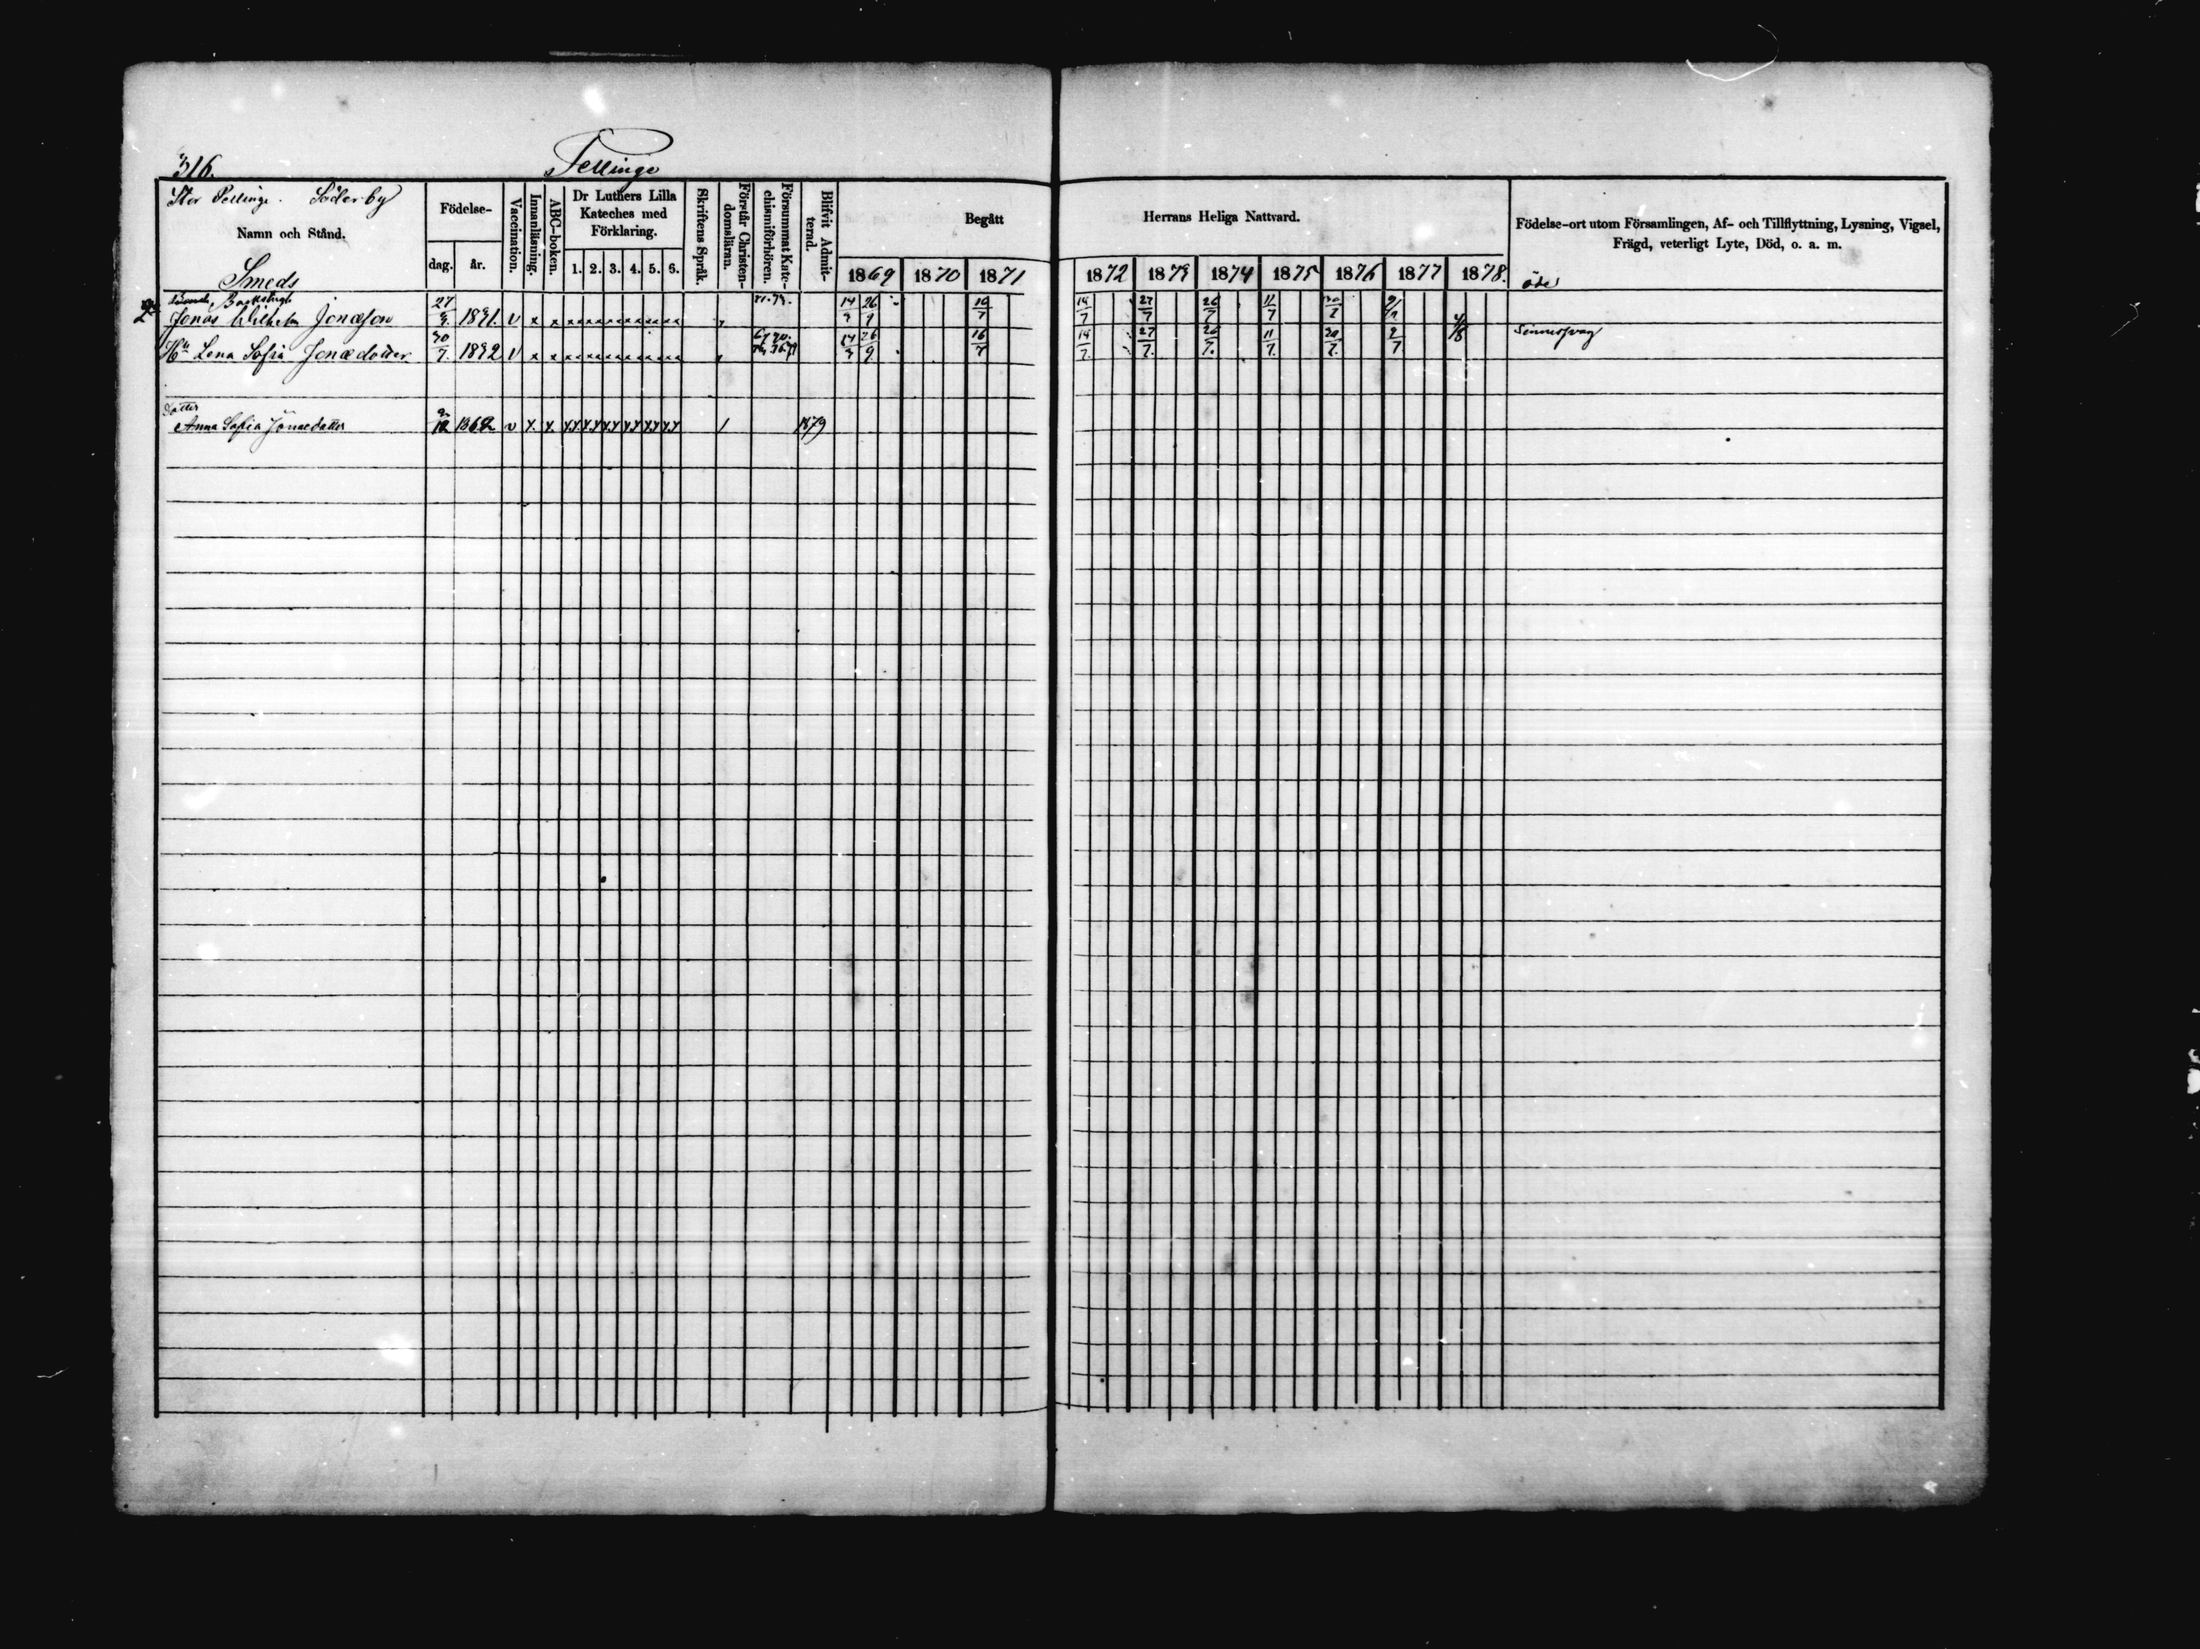 316.
Pellinge
Stor Pellinge. Söderby
Namn och Stånd.
Smeds
Födelse-
dag. år.
Vaccination.
Innanläsning.
ABC-boken.
Dr Luthers Lilla
Kateches med
Förklaring.
1. 2. 3. 4. 5. 6.
Skriftens Språk.
Förstår Christen-
domsläran.
Försummat Kate-
chismiförhören.
Blifvit Admit-
terad.
Begått
1869 1870 1871
Herrans Heliga Nattvard.
1872 1873 1874 1875 1876 1877 1878.
Födelse-ort utom Församlingen, Af- och Tillflyttning, Lysning, Vigsel,
Frägd, veterligt Lyte, Död, o. a. m.
öde
Jonas Wilhelm Jonasson 27/3 1831. v x x 14/3 26/9 16/7 14/7 27/7 26/7 11/7 30/7
Hu Lena Sofia Jonædotter 30/7. 1832 v x x 14/3 26/9 16/7 14/7. 27/7. 26/7. 11/7. 30/7. 2/7. Sinnessvag
Dotter
Anna Sofia Jonædotter 1862 v x x 1879